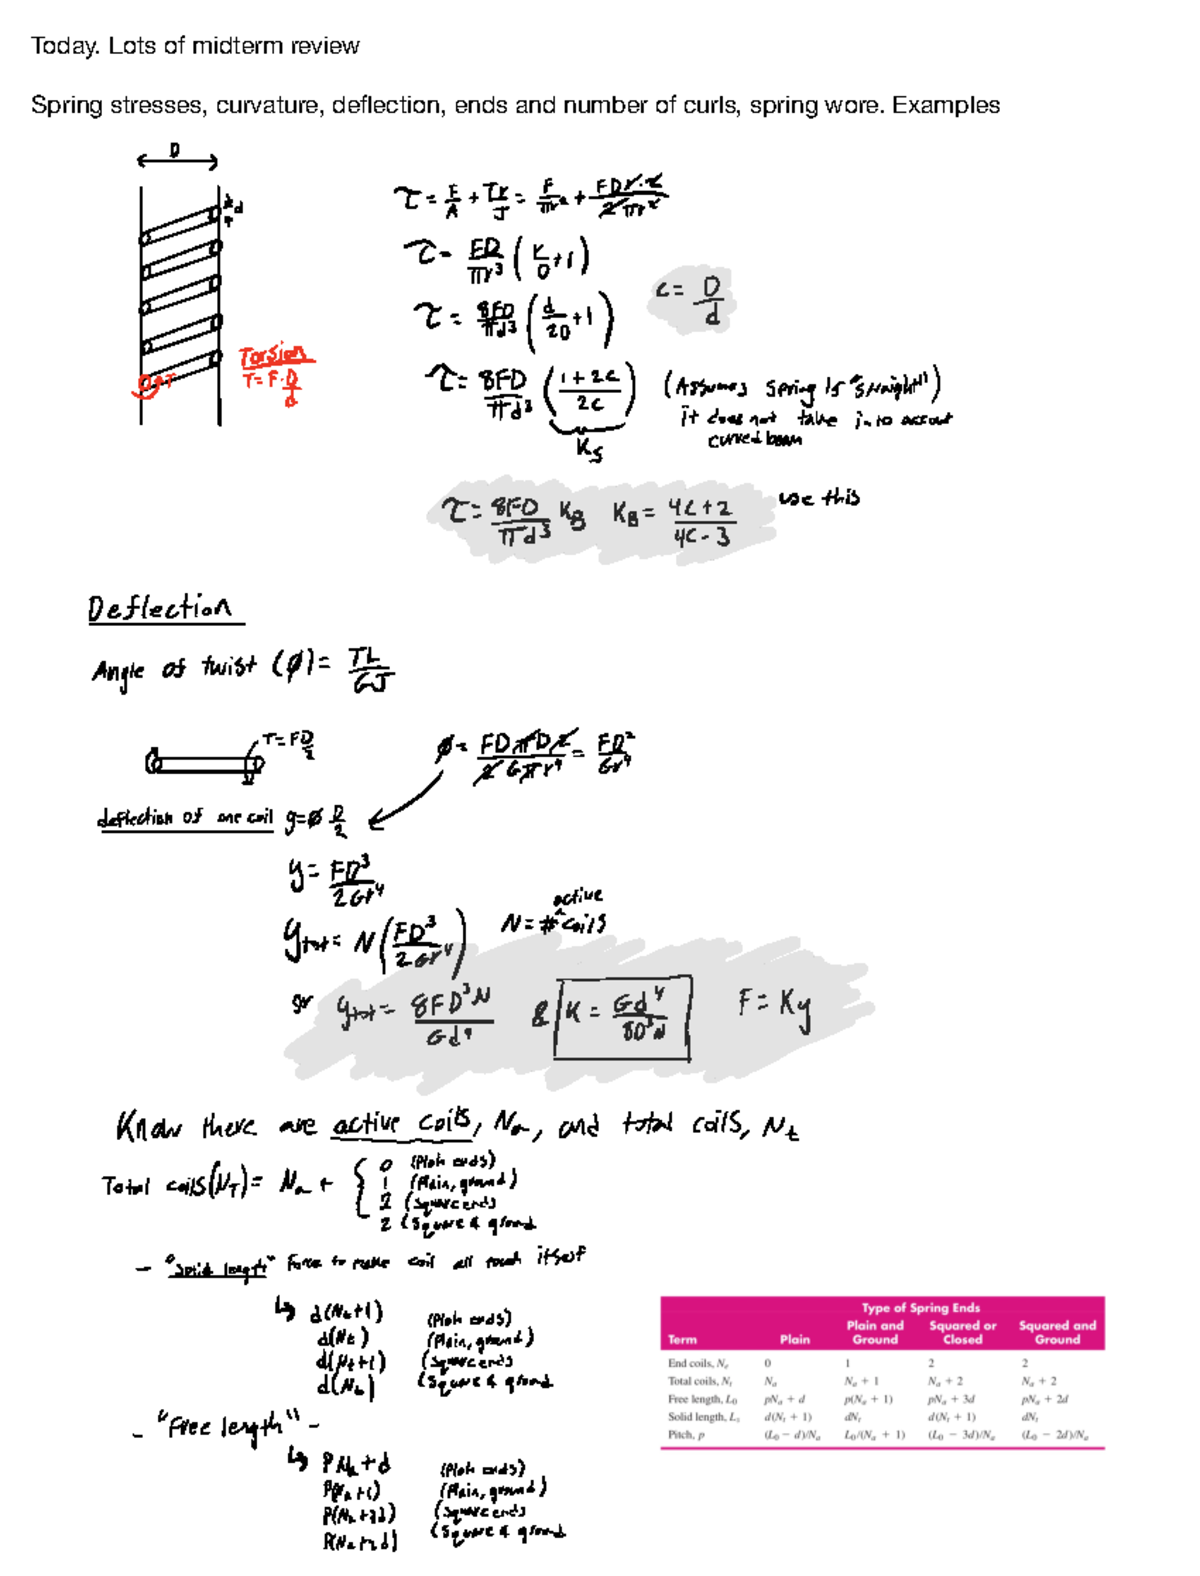 Today. Lots of midterm review
Spring stresses, curvature, deflection, ends and number of curls, spring wore. Examples
D
d
T
Torsion
T = F·D/d
τ = F/A + Tr/J = F/πr² + FDr·2/2πr²
τ = FD/πr³ (r/D + 1)
τ = 8FD/πd³ (d/2D + 1)
c = D/d
τ = 8FD/πd³ (1+2c/2c)
Ks
(Assumes spring is "straight")
it does not take into account
curved beam
τ = 8FD/πd³ KB KB = 4c+2/4c-3
use this
Deflection
Angle of twist (ϕ) = TL/GJ
T = FD/2
ϕ = FDπD2/2Gπr⁴ = FD²/Gr⁴
deflection of one coil y = ϕ D/2
y = FD³/2Gr⁴
ytot = N(FD³/2Gr⁴)
N = # active coils
or ytot = 8FD³N/Gd⁴ & K = Gd⁴/8D³N F = Ky
Know there are active coils, Na, and total coils, Nt
Total coils (NT) = Na + { 0 (Plain ends)
1 (Plain, ground)
2 (Square ends)
2 (Square & ground
- "Solid length" Force to make coil all touch itself
↳ d(Nt+1) (Plain ends)
d(Nt) (Plain, ground)
d(Nt+1) (Square ends
d(Nt) (Square & ground
- "Free length" -
↳ PNa+d (Plain ends)
P(Na+1) (Plain, ground)
P(Na+3d) (Square ends
P(Na+2d) (Square & ground
Type of Spring Ends
Term Plain Plain and Ground Squared or Closed Squared and Ground
End coils, Ne 0 1 2 2
Total coils, Nt Na Na + 1 Na + 2 Na + 2
Free length, L0 pNa + d p(Na + 1) pNa + 3d pNa + 2d
Solid length, Ls d(Nt + 1) dNt d(Nt + 1) dNt
Pitch, p (L0 − d)/Na L0/(Na + 1) (L0 − 3d)/Na (L0 − 2d)/Na